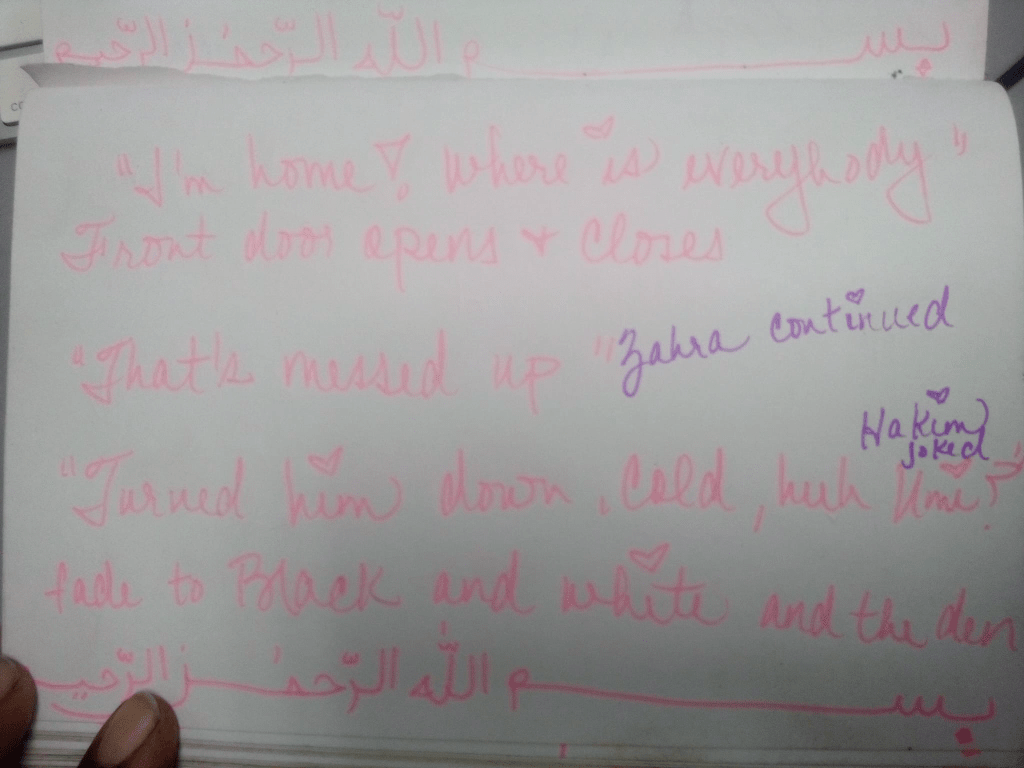 بســــــــم اللّه الرّحمٰن الرّحيم
"I'm home! Where is everybody"
Front door opens & closes
"That's messed up" Zahra continued
Hakim joked
"Turned him down, cold, huh Umi?"
fade to Black and white and the den
بســــــــم اللّه الرّحمٰن الرّحيم